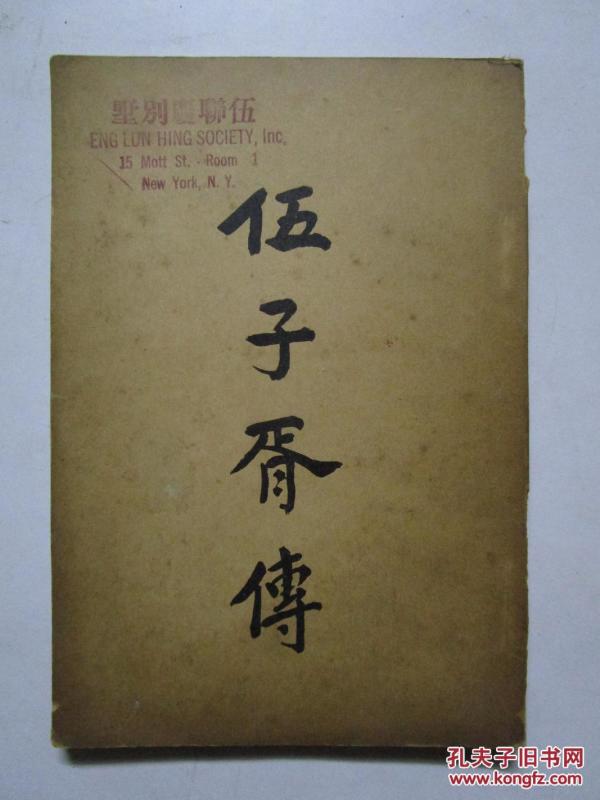 伍聯慶別墅
ENG LUN HING SOCIETY, Inc.
15 Mott St. - Room 1
New York, N. Y.
伍子胥傳
孔夫子旧书网
www.kongfz.com